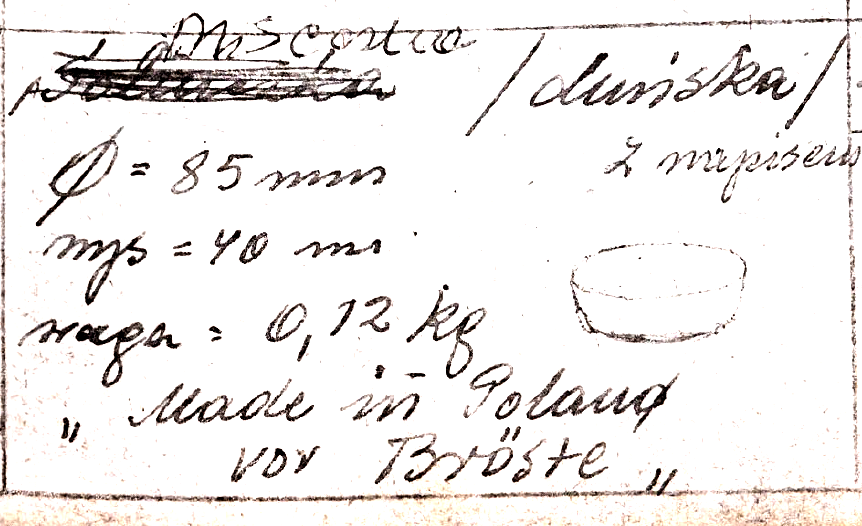 Miseczka
/duńska/
z napisem
Ø = 85 mm
wys = 40 m
waga = 0,12 kg
„ Made in Poland
vor Bröste „